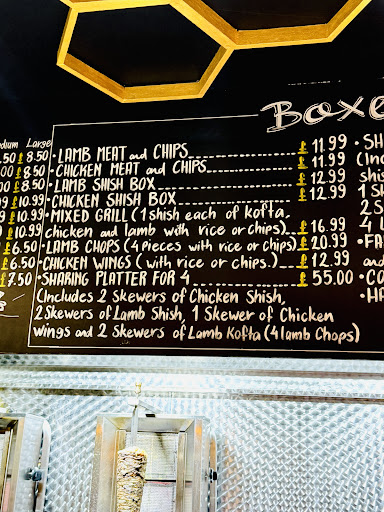 Boxe
dium Large
.50 £ 8.50
00 £ 8.50
0 £ 8.50
99 £ 10.99
9 £ 10.99
9 £ 10.99
£ 6.50
£ 6.50
£ 7.50
• LAMB MEAT and CHIPS £ 11.99
• CHICKEN MEAT and CHIPS £ 11.99
• LAMB SHISH BOX £ 12.99
• CHICKEN SHISH BOX £ 12.99
• MIXED GRILL (1 shish each of kofta,
chicken and lamb with rice or chips) £ 16.99
• LAMB CHOPS (4 pieces with rice or chips) £ 20.99
• CHICKEN WINGS (with rice or chips.) £ 12.99
• SHARING PLATTER FOR 4 £ 55.00
(Includes 2 Skewers of Chicken Shish,
2 Skewers of Lamb Shish, 1 Skewer of Chicken
wings and 2 Skewers of Lamb Kofta (4 lamb Chops)
• SH
(Inc
shis
1 S
2 S
4 L
• FA
and
• CO
• HA